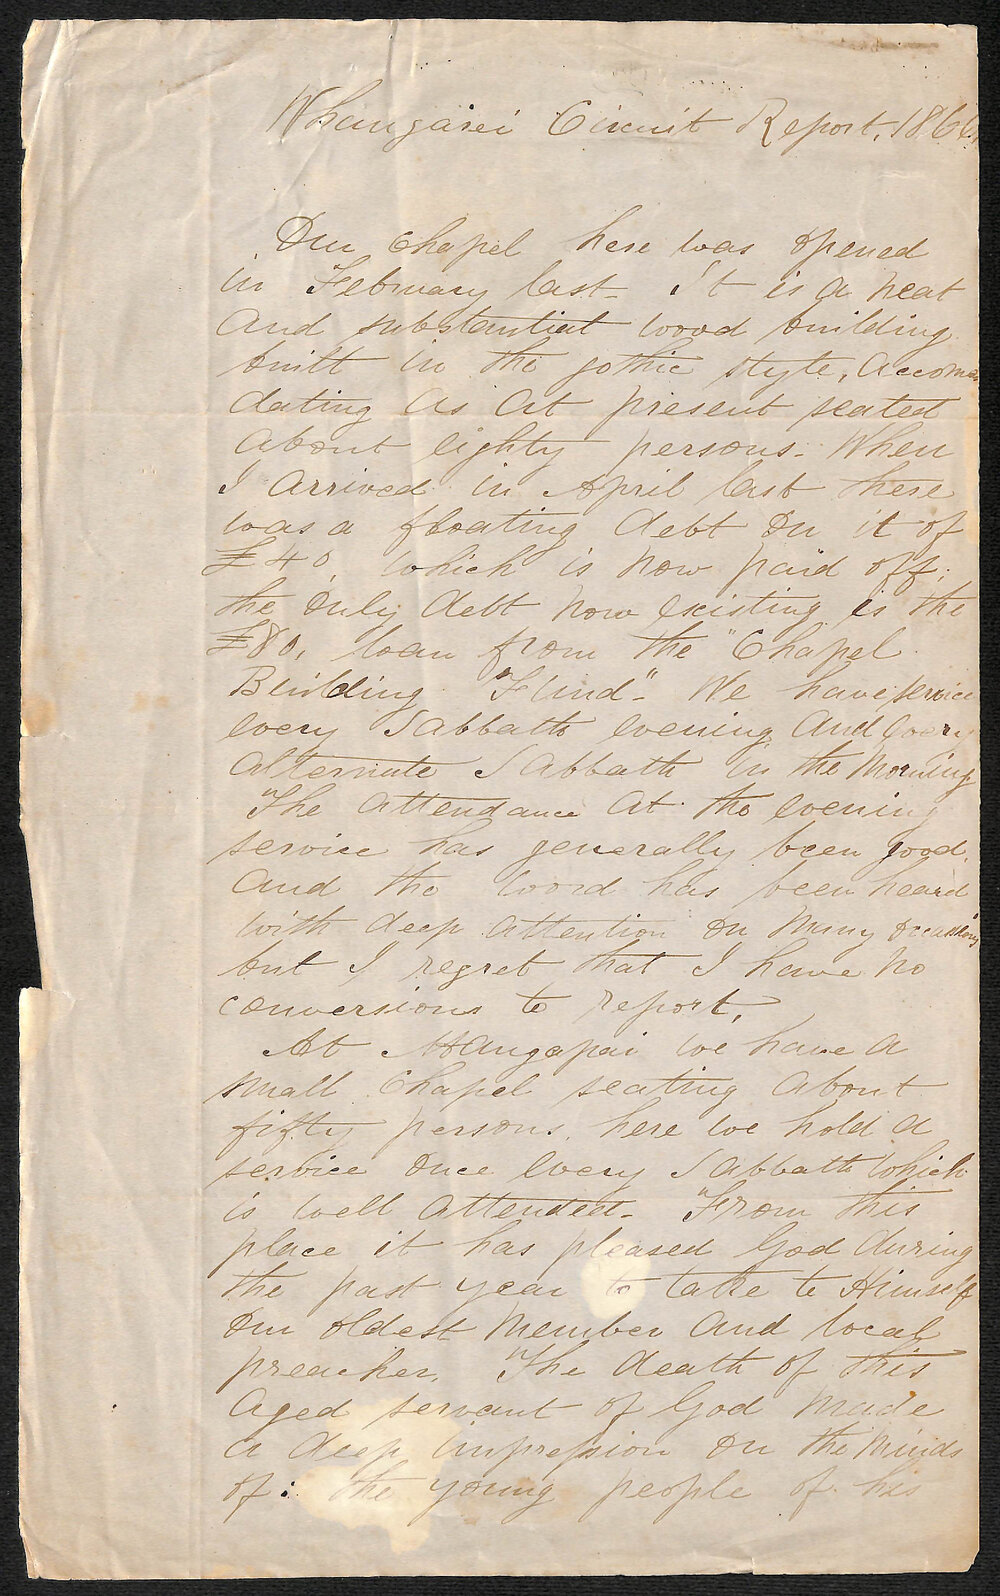 Whangarei Circuit Report, 1866,
Our Chapel here was opened
in February last - it is a neat
and substantial wood building
built in the gothic style, accomo
dating as at present seated
about eighty persons - When
I arrived in April last there
was a floating debt on it of
£40, which is now paid off;
the only debt now existing is the
£80, loan from the "Chapel
Building Fund". We have service
every Sabbath evening and every
alternate Sabbath in the morning
The attendance at the evening
service has generally been good,
and the word has been heard
with deep attention on many occasions
but I regret that I have no
conversions to report,
At Mangapai we have a
small Chapel seating about
fifty persons, here we hold a
service once every Sabbath which
is well attended - From this
place it has pleased God during
the past year to take to Himself
our oldest Member and local
preacher, The death of this
aged servant of God made
a deep impression on the minds
of : the young people of his